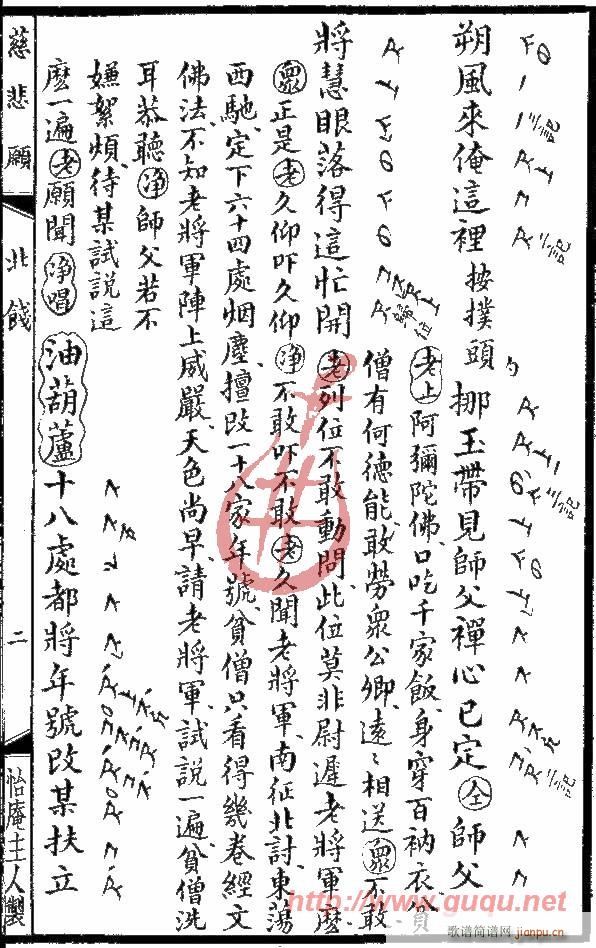 朔風來俺這裡 按撲頭 挪玉帶見師父禪心已定 仝 師父
將慧眼落得這忙開 老上 阿彌陀佛口吃千家飯身穿百衲衣貧
僧有何德能敢勞眾公卿遠〻相送 眾 不敢
老 列位不敢動問此位莫非尉遲老將軍麼
眾 正是 老 久仰吓久仰 淨 不敢吓不敢 老 久聞老將軍南征北討東蕩
西馳定下六十四處烟塵擅改一十八家年號貧僧只看得幾卷經文
佛法不知老將軍陣上威嚴天色尚早請老將軍試說一遍貧僧洗
耳恭聽 淨 師父若不
嫌絮煩待某試說這
麼一遍 老 願聞 淨唱 油葫蘆 十八處都將年號改某扶立
慈悲願
北餞
二
怡庵主人製
http://www.guqu.net
歌谱简谱网
jianpu.cn